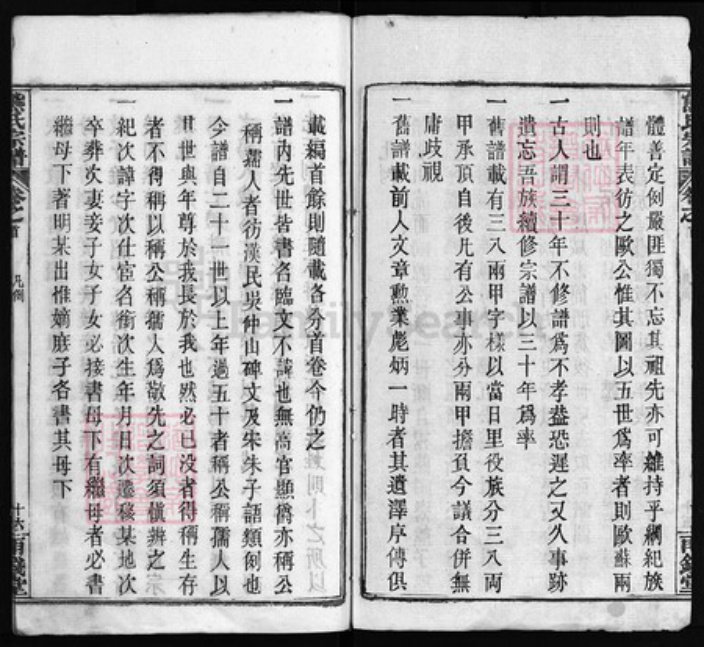 體善定例嚴匪獨不忘其祖先亦可維持乎綱紀族
譜年表彷之歐公惟其圖以五世爲率者則歐蘇兩
則也
一古人謂三十年不修譜爲不孝葢恐遲之又久事跡
遺忘吾族續修宗譜以三十年爲率
一舊譜載有三八兩甲字樣以當日里役族分三八兩
甲承頂自後凢有公事亦分兩甲擔負今議合併無
庸歧視
一舊譜載前人文章勲業彪炳一時者其遺澤序傳俱
熊氏宗譜
卷之首
凡例
十六
雨錢堂
載編首餘則隨載各分首卷今仍之
一譜內先世皆書名臨文不諱也無高官顯爵亦稱公
稱孺人者彷漢民吳仲山碑文及宋朱子語類例也
今譜自二十一世以上年過五十者稱公稱孺人以
其世與年尊於我長於我也然必已没者得稱生存
者不得稱以稱公稱孺人爲敬先之詞須愼辨之
一紀次諱字次仕宦名銜次生年月日次遷移某地次
卒葬次妻妾子女子女必接書母下有繼母者必書
繼母下著明某出惟嫡庶子各書其母下
FamilySearch